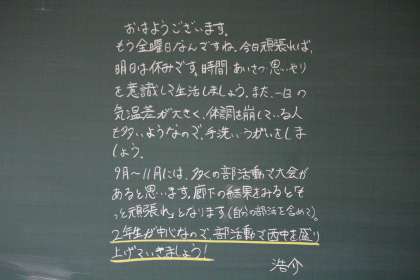 おはようございます。
もう金曜日なんですね。今日頑張れば、
明日は休みです。時間 あいさつ 思いやり
を意識して生活しましょう。また、一日の
気温差が大きく、体調を崩している人
も多いようなので、手洗いうがいをしま
しょう。
9月～11月には、多くの部活動で大会が
あると思います。廊下の結果をみると「も
っと頑張れ」となります(自分の部活を含めて)。
2年生が中心なので、部活動で西中を盛り
上げていきましょう!
浩介